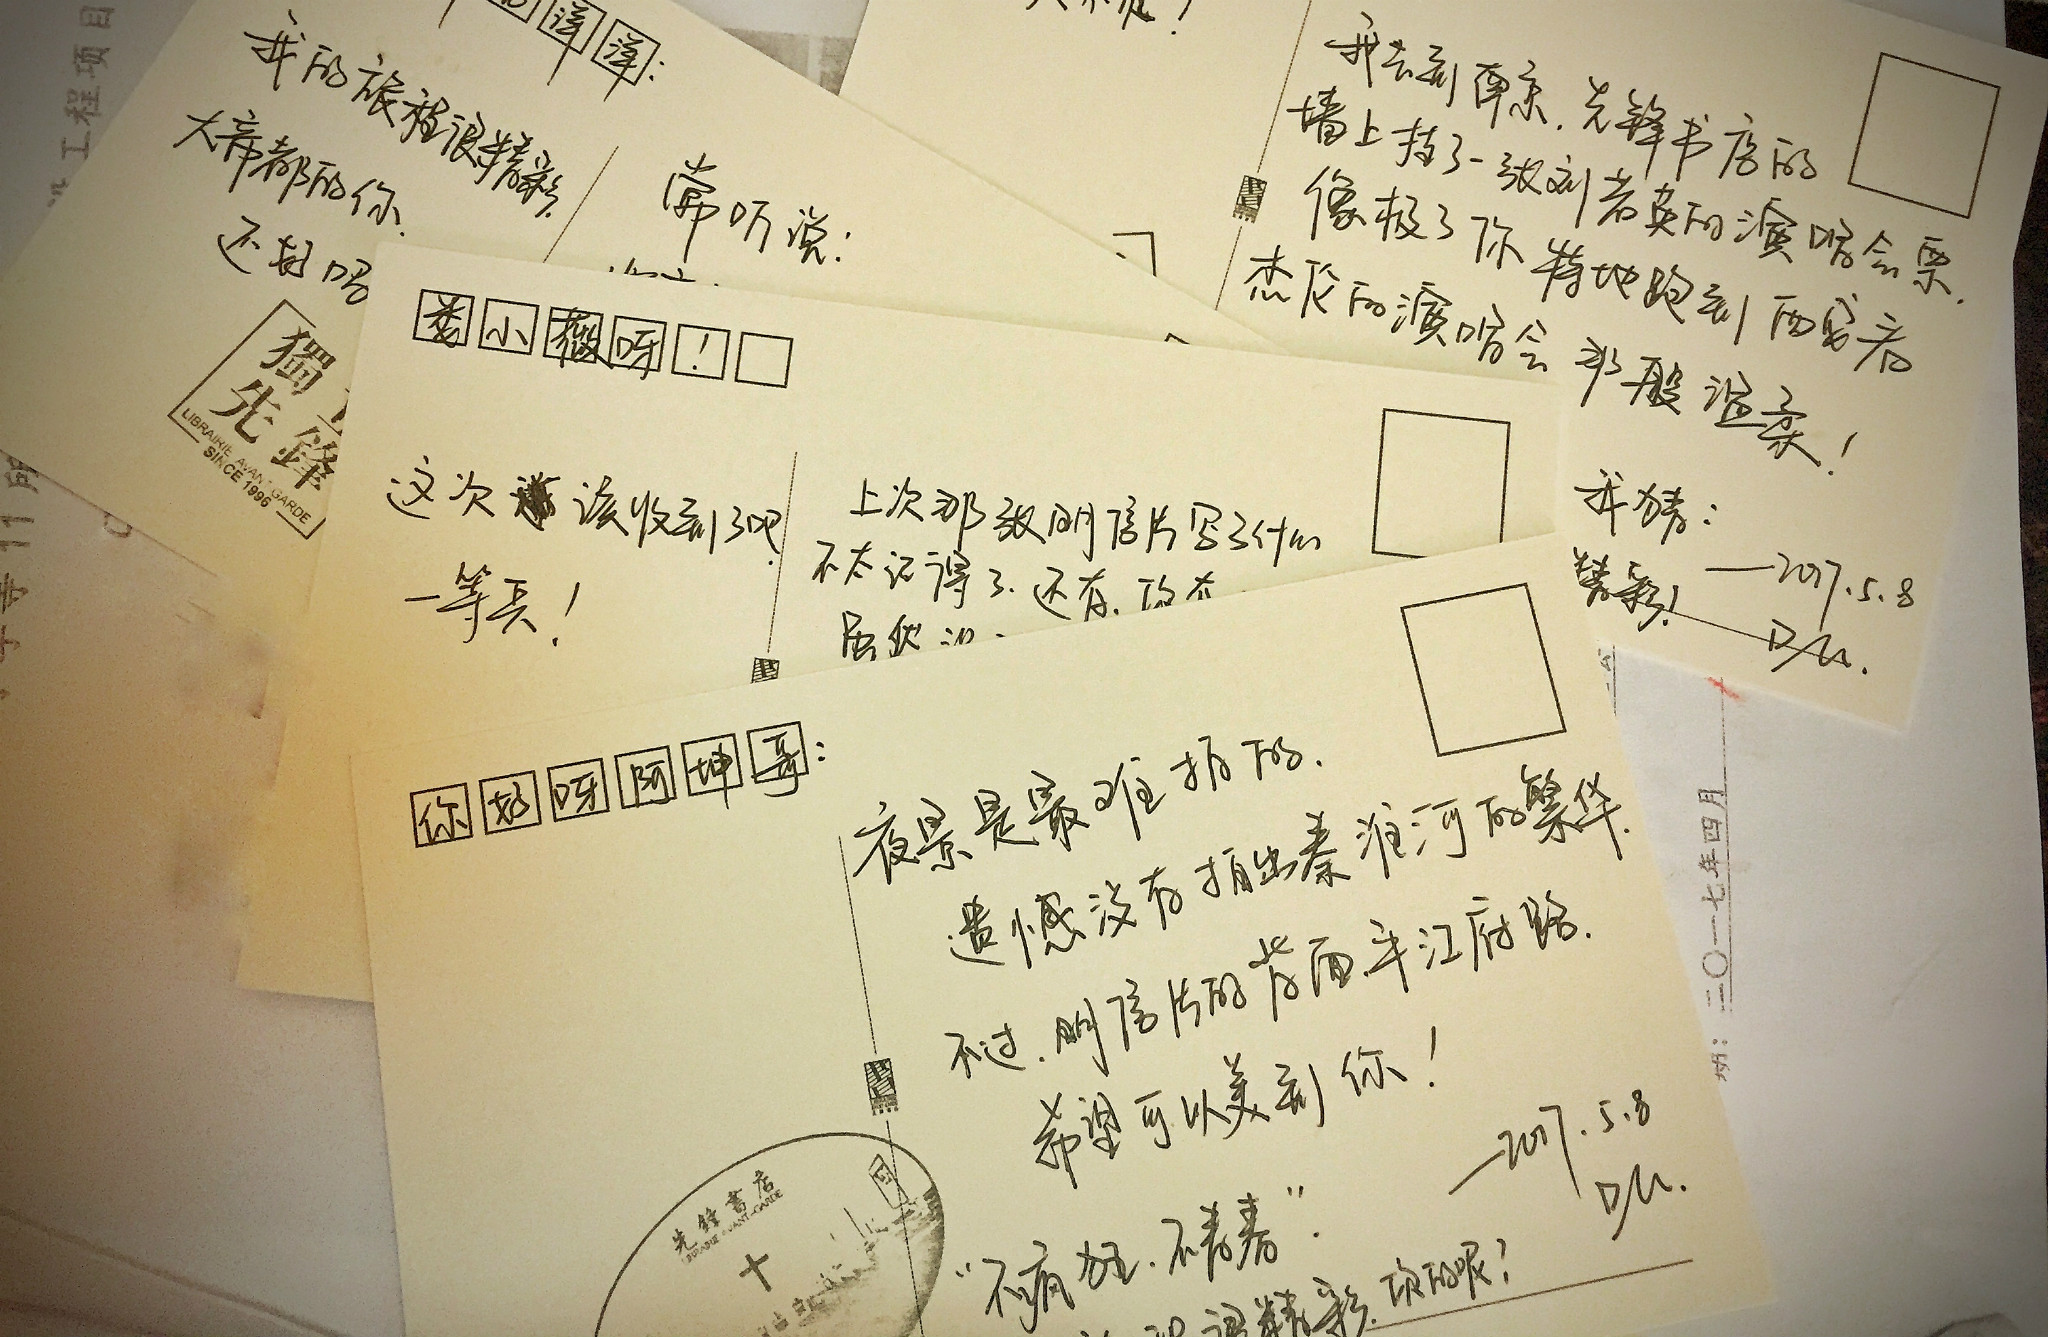 洋洋:
我的旅程很精彩,
大帝都的你.
还好吗
常听说:
獨立
先鋒
LIBRAIRIE AVANT GARDE
SINCE 1996
我去到南京.先锋书店的
墙上挂了一张刘若英的演唱会票.
像极了你特地跑到西安看
杰伦的演唱会那般温柔!
我猜:
精彩!
—2017.5.8
D/U.
娄小薇呀!
这次应该收到了吧
一等兵!
上次那张明信片写了什么
不太记得了.还有.现在
虽然
你好呀阿坤哥:
夜景是最难拍的.
遗憾没有拍出秦淮河的繁华.
不过.明信片的背面.平江府路.
希望可以美到你!
—2017.5.8
D/U.
“不疯狂.不青春”.
很精彩.项的呢?
先鋒書店
LIBRAIRIE AVANT-GARDE
工程项目
二〇一七年四月